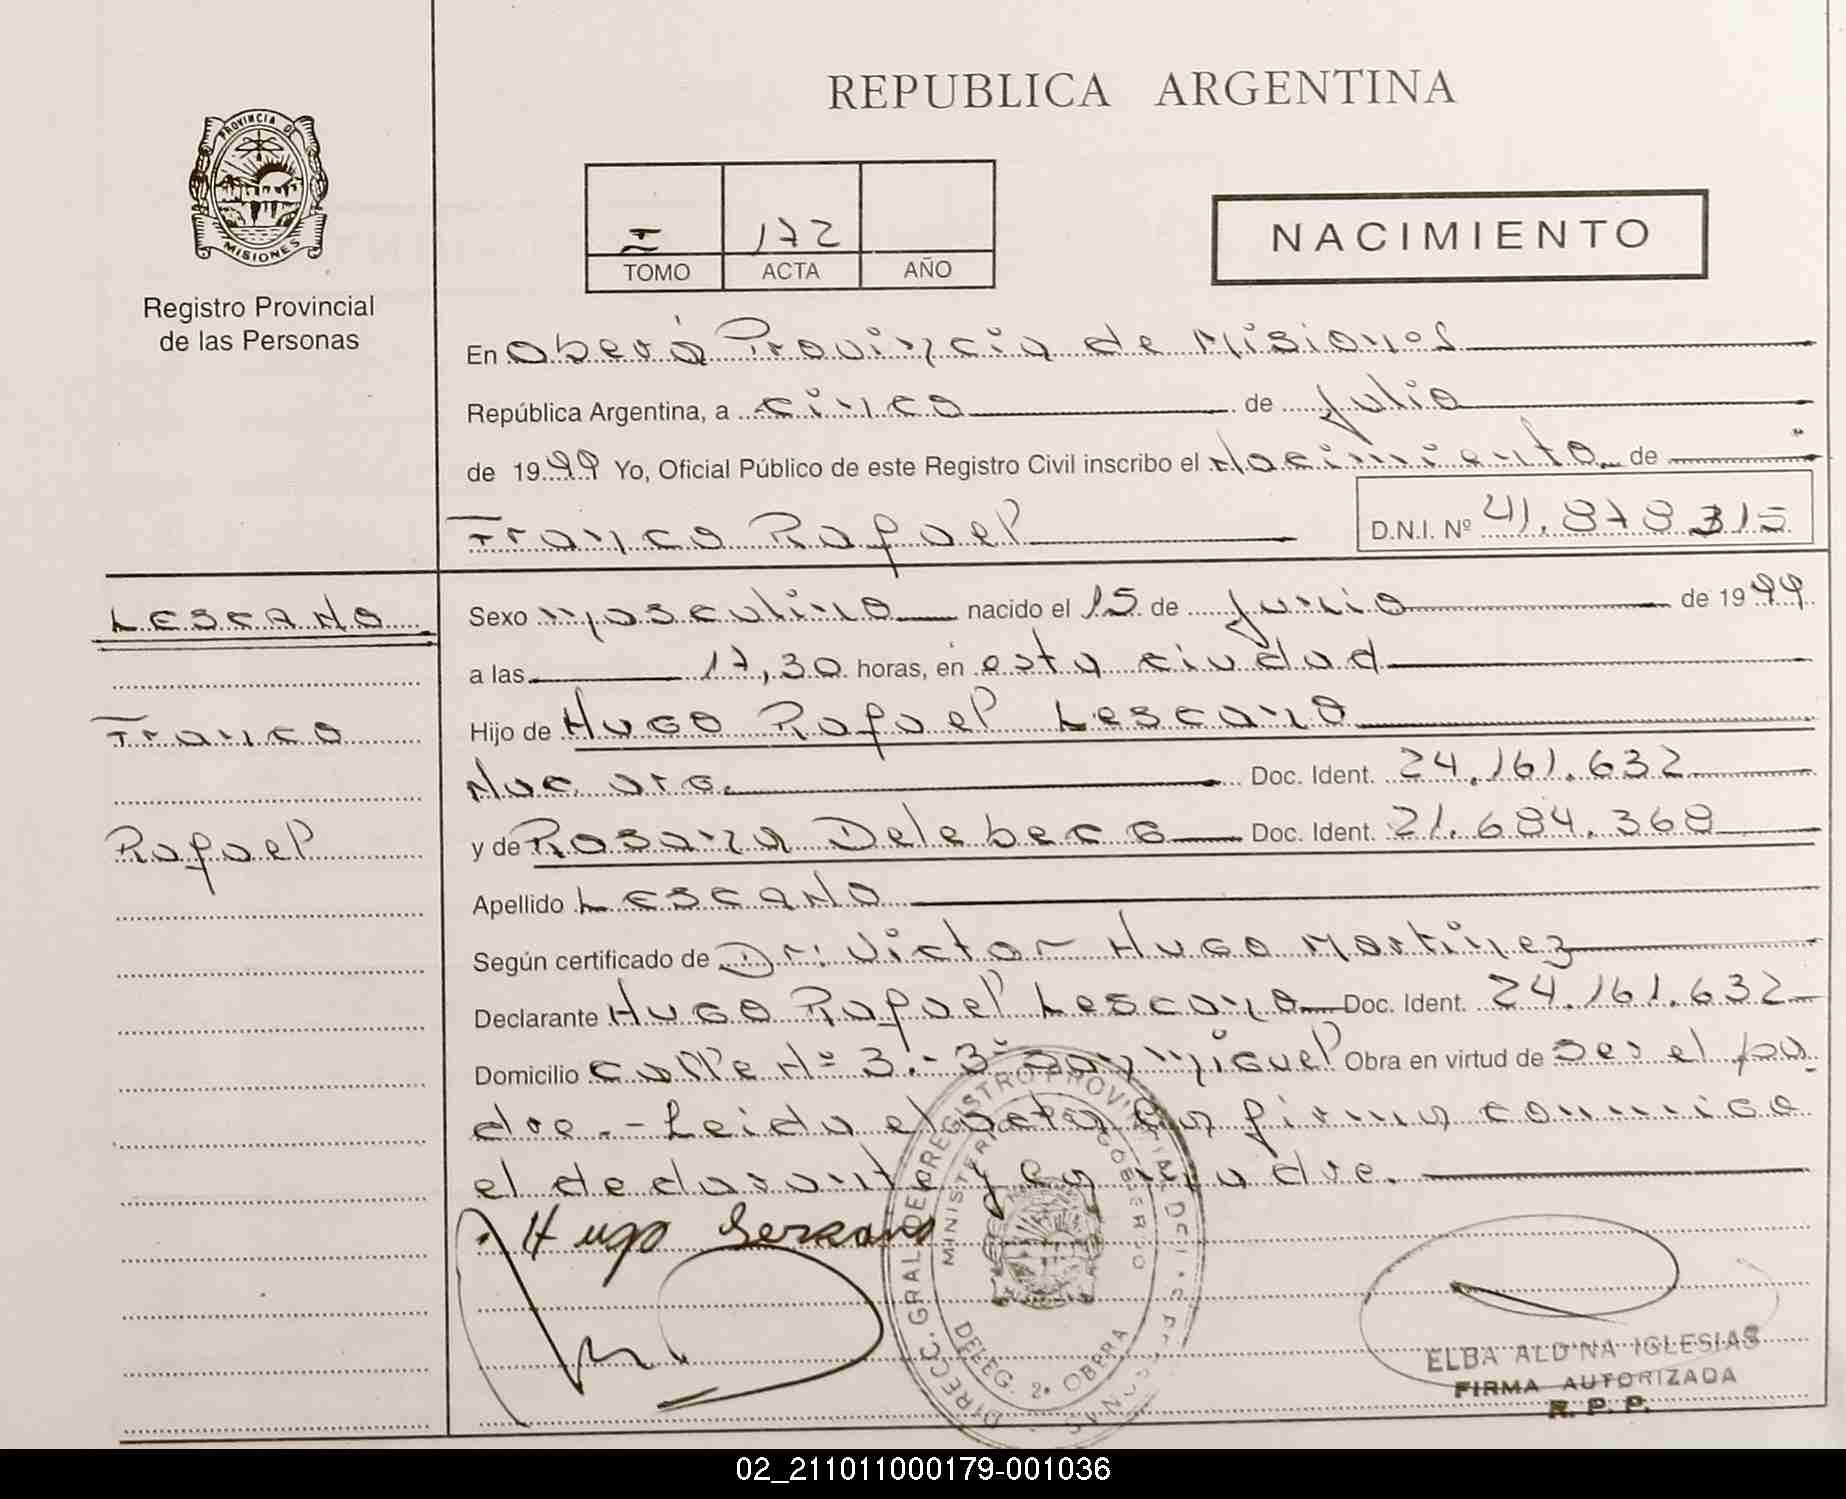 REPUBLICA ARGENTINA
PROVINCIA DE
MISIONES
Registro Provincial
de las Personas
I 172
TOMO ACTA AÑO
NACIMIENTO
En Oberá Provincia de Misiones
República Argentina, a cinco de julio
de 1999 Yo, Oficial Público de este Registro Civil inscribo el Nacimiento de
Franco Rafael D.N.I. Nº 41.878.315
LESCANO
Franco
Rafael
Sexo masculino nacido el 15 de junio de 1999
a las 17,30 horas, en esta ciudad
Hijo de Hugo Rafael Lescano
Doc. Ident. 24.161.632
y de Rosana Delebecq Doc. Ident. 21.684.368
Apellido LESCANO
Según certificado de Dr: Victor Hugo Martinez
Declarante Hugo Rafael Lescano Doc. Ident. 24.161.632
Domicilio calle Nº 3.- 3º San Miguel Obra en virtud de ser el pa
dre.- Leida el acta la firma conmigo
el declarante y la madre.
Hugo Lescano
DIRECC. GRAL. DEL REGISTRO PROVINCIAL DE
MINISTERIO GOBIERNO
DELEG. 2. OBERA
ELBA ALDINA IGLESIAS
FIRMA AUTORIZADA
R. P. P.
02_211011000179-001036